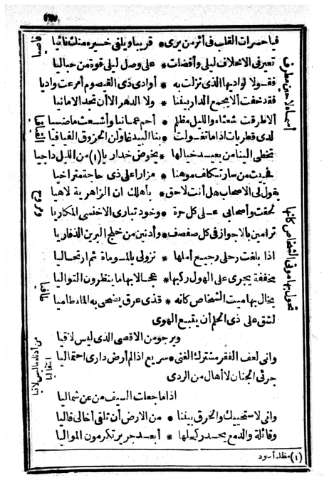 فيا حسرات القلب في أثر من يرى * قريبا ويلقى خيره منك قاصيا
تعيرني الاخلاف ليلى وأفضلت * على وصل ليلى قوة من حباليا
فقولا لواديها الذي نزلت به * أوادي ذي القيصوم أمرعت واديا
فقد خفت ألا تجمع الدار بيننا * ولا الدهر الا أن تجد الأمانيا
ألا طرقت شعثاء والليل مظلم * أحم عمانيا وأشعث ماضيا
لدى قطريات اذا ما تغولت * بنا البيد غاولن الحزوم الفيافيا
تخطى الينا من بعيد خيالها * يخوض خداريا (١) من الليل داجيا
فحييت من سار تكلف موهنا * مزارا على ذي حاجة متراخيا
يقول لي الأصحاب هل أنت لاحق * بأهلك ان الزاهرية لاهيا
لحقت وأصحابي على كل حرة * وخود تباري الأحمسي المكاريا
ترامين بالاجواز في كل صفصف * وأدنين من خلج البرين الذفاريا
اذا بلغت رحلي رجيع أملها * نزولي بالموماة ثم ارتحاليا
مخفقة يجري على الهول ركبها * عجالا بها ما ينظرون التواليا
يخال بها ميت الشخاص كأنه * قذى عرق يضحي به الماء طاميا
لشق على ذي الحلم أن يتبع الهوى
ويرجو من الأقصى الذي ليس لاقيا
واني لعف الفقر مشترك الغنى * سريع اذا لم أرض داري احتماليا
جرئ الجنان لا أهال من الردى
اذا ما جعلت السيف من عن شماليا
واني لأستحييك والخرق بيننا * من الأرض أن تلقى أخا لي قاليا
وقائلة والدمع يحدر كحلها * أبعد جرير تكرمون المواليا
(١) مظلم أسود